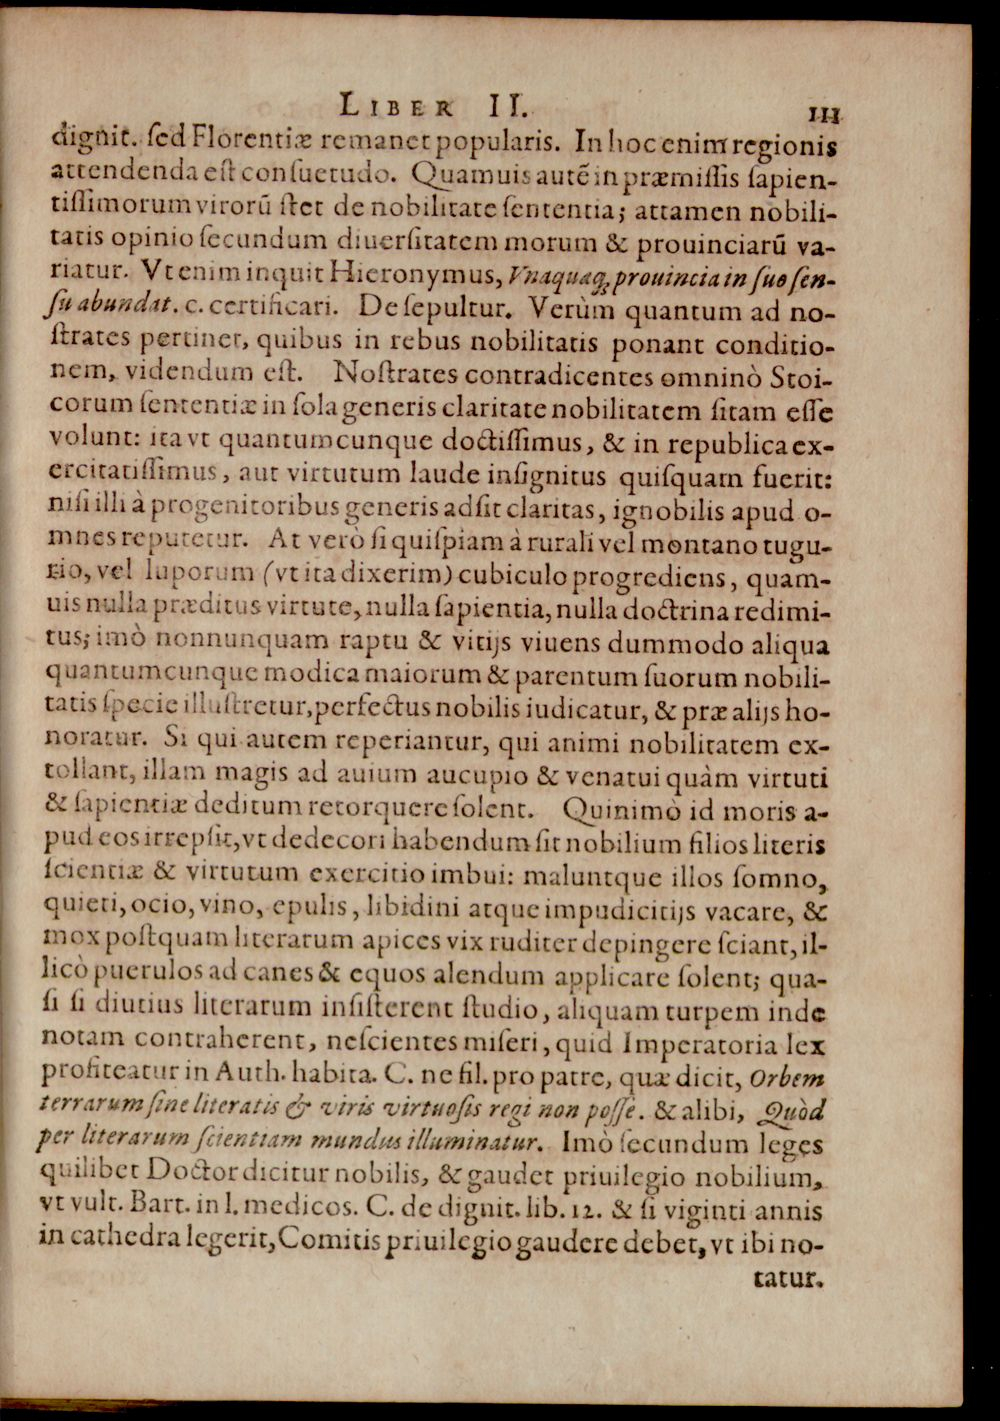 LIBER II. 111
dignit. ſed Florentiæ remanet popularis. In hoc enim regionis
attendenda eſt conſuetudo. Quamuis autē in præmiſſis ſapien-
tiſſimorum virorū ſtet de nobilitate ſententia; attamen nobili-
tatis opinio ſecundum diuerſitatem morum & prouinciarū va-
riatur. Vt enim inquit Hieronymus, Vnaquaq; prouincia in ſuo ſen-
ſu abundat. c. certificari. De ſepultur. Verùm quantum ad no-
ſtrates pertinet, quibus in rebus nobilitatis ponant conditio-
nem, videndum eſt. Noſtrates contradicentes omninò Stoi-
corum ſententiæ in ſola generis claritate nobilitatem ſitam eſſe
volunt: ita vt quantumcunque doctiſſimus, & in republica ex-
ercitatiſſimus, aut virtutum laude inſignitus quiſquam fuerit:
niſi illi à progenitoribus generis adſit claritas, ignobilis apud o-
mnes reputetur. At verò ſi quiſpiam à rurali vel montano tugu-
rio, vel luporum (vt ita dixerim) cubiculo progrediens, quam-
uis nulla præditus virtute, nulla ſapientia, nulla doctrina redimi-
tus; imò nonnunquam raptu & vitijs viuens dummodo aliqua
quantumcunque modica maiorum & parentum ſuorum nobili-
tatis ſpecie illuſtretur, perfectus nobilis iudicatur, & præ alijs ho-
noratur. Si qui autem reperiantur, qui animi nobilitatem ex-
tollant, illam magis ad auium aucupio & venatui quàm virtuti
& ſapientiæ deditum retorquere ſolent. Quinimò id moris a-
pud eos irrepſit, vt dedecori habendum ſit nobilium filios literis
ſcientiæ & virtutum exercitio imbui: maluntque illos ſomno,
quieti, ocio, vino, epulis, libidini atque impudicitijs vacare, &
mox poſtquam literarum apices vix ruditer depingere ſciant, il-
licò puerulos ad canes & equos alendum applicare ſolent; qua-
ſi ſi diutius literarum inſiſterent ſtudio, aliquam turpem inde
notam contraherent, neſcientes miſeri, quid Imperatoria lex
profiteatur in Auth. habita. C. ne fil. pro patre, quæ dicit, Orbem
terrarum ſine literatis & viris virtuoſis regi non poſſe. & alibi, Quòd
per literarum ſcientiam mundus illuminatur. Imò ſecundum leges
quilibet Doctor dicitur nobilis, & gaudet priuilegio nobilium,
vt vult. Bart. in l. medicos. C. de dignit. lib. 12. & ſi viginti annis
in cathedra legerit, Comitis priuilegio gaudere debet, vt ibi no-
tatur.